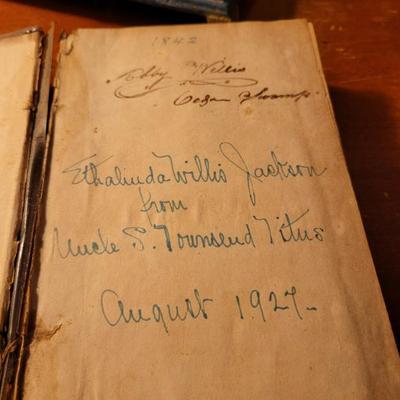 1842
Abby Willis
Cedar Swamp
Ethalinda Willis Jackson
from
Uncle S. Townsend Titus
August 1927-